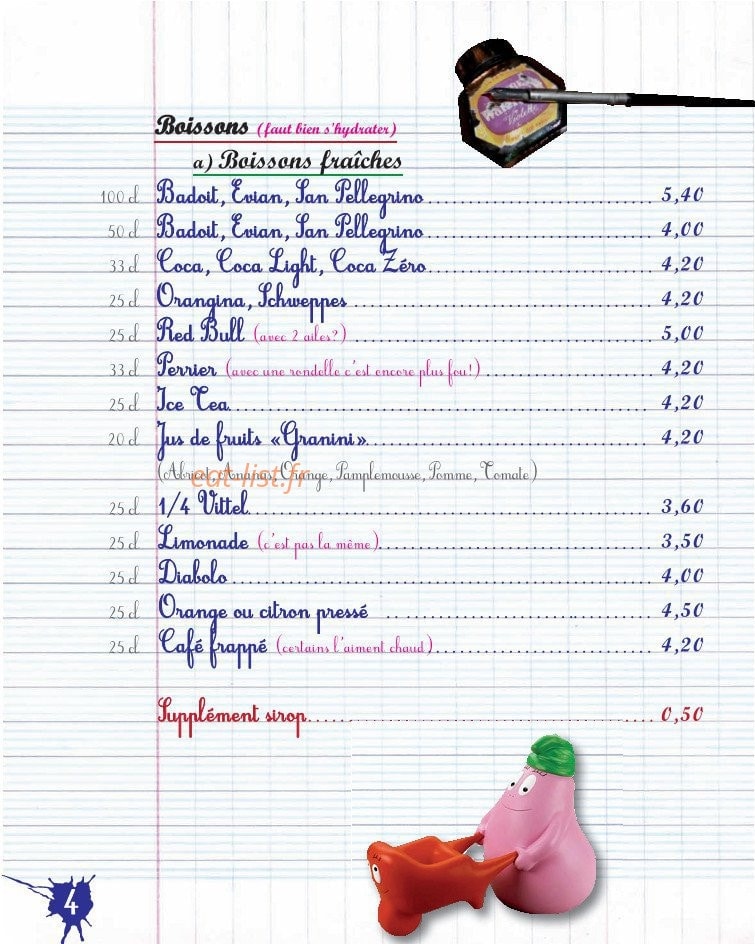 Waterman
Violette
Boissons (faut bien s'hydrater)
a) Boissons fraîches
100 cl Badoit, Evian, San Pellegrino.......... 5,40
50 cl Badoit, Evian, San Pellegrino.......... 4,00
33 cl Coca, Coca Light, Coca Zéro.......... 4,20
25 cl Orangina, Schweppes.......... 4,20
25 cl Red Bull (avec 2 ailes?).......... 5,00
33 cl Perrier (avec une rondelle c'est encore plus fou!).......... 4,20
25 cl Ice Tea.......... 4,20
20 cl Jus de fruits «Granini».......... 4,20
(Abricot, Ananas, Orange, Pamplemousse, Pomme, Tomate)
eat-list.fr
25 cl 1/4 Vittel.......... 3,60
25 cl Limonade (c'est pas la même).......... 3,50
25 cl Diabolo.......... 4,00
25 cl Orange ou citron pressé.......... 4,50
25 cl Café frappé (certains l'aiment chaud).......... 4,20
Supplément sirop.......... 0,50
4